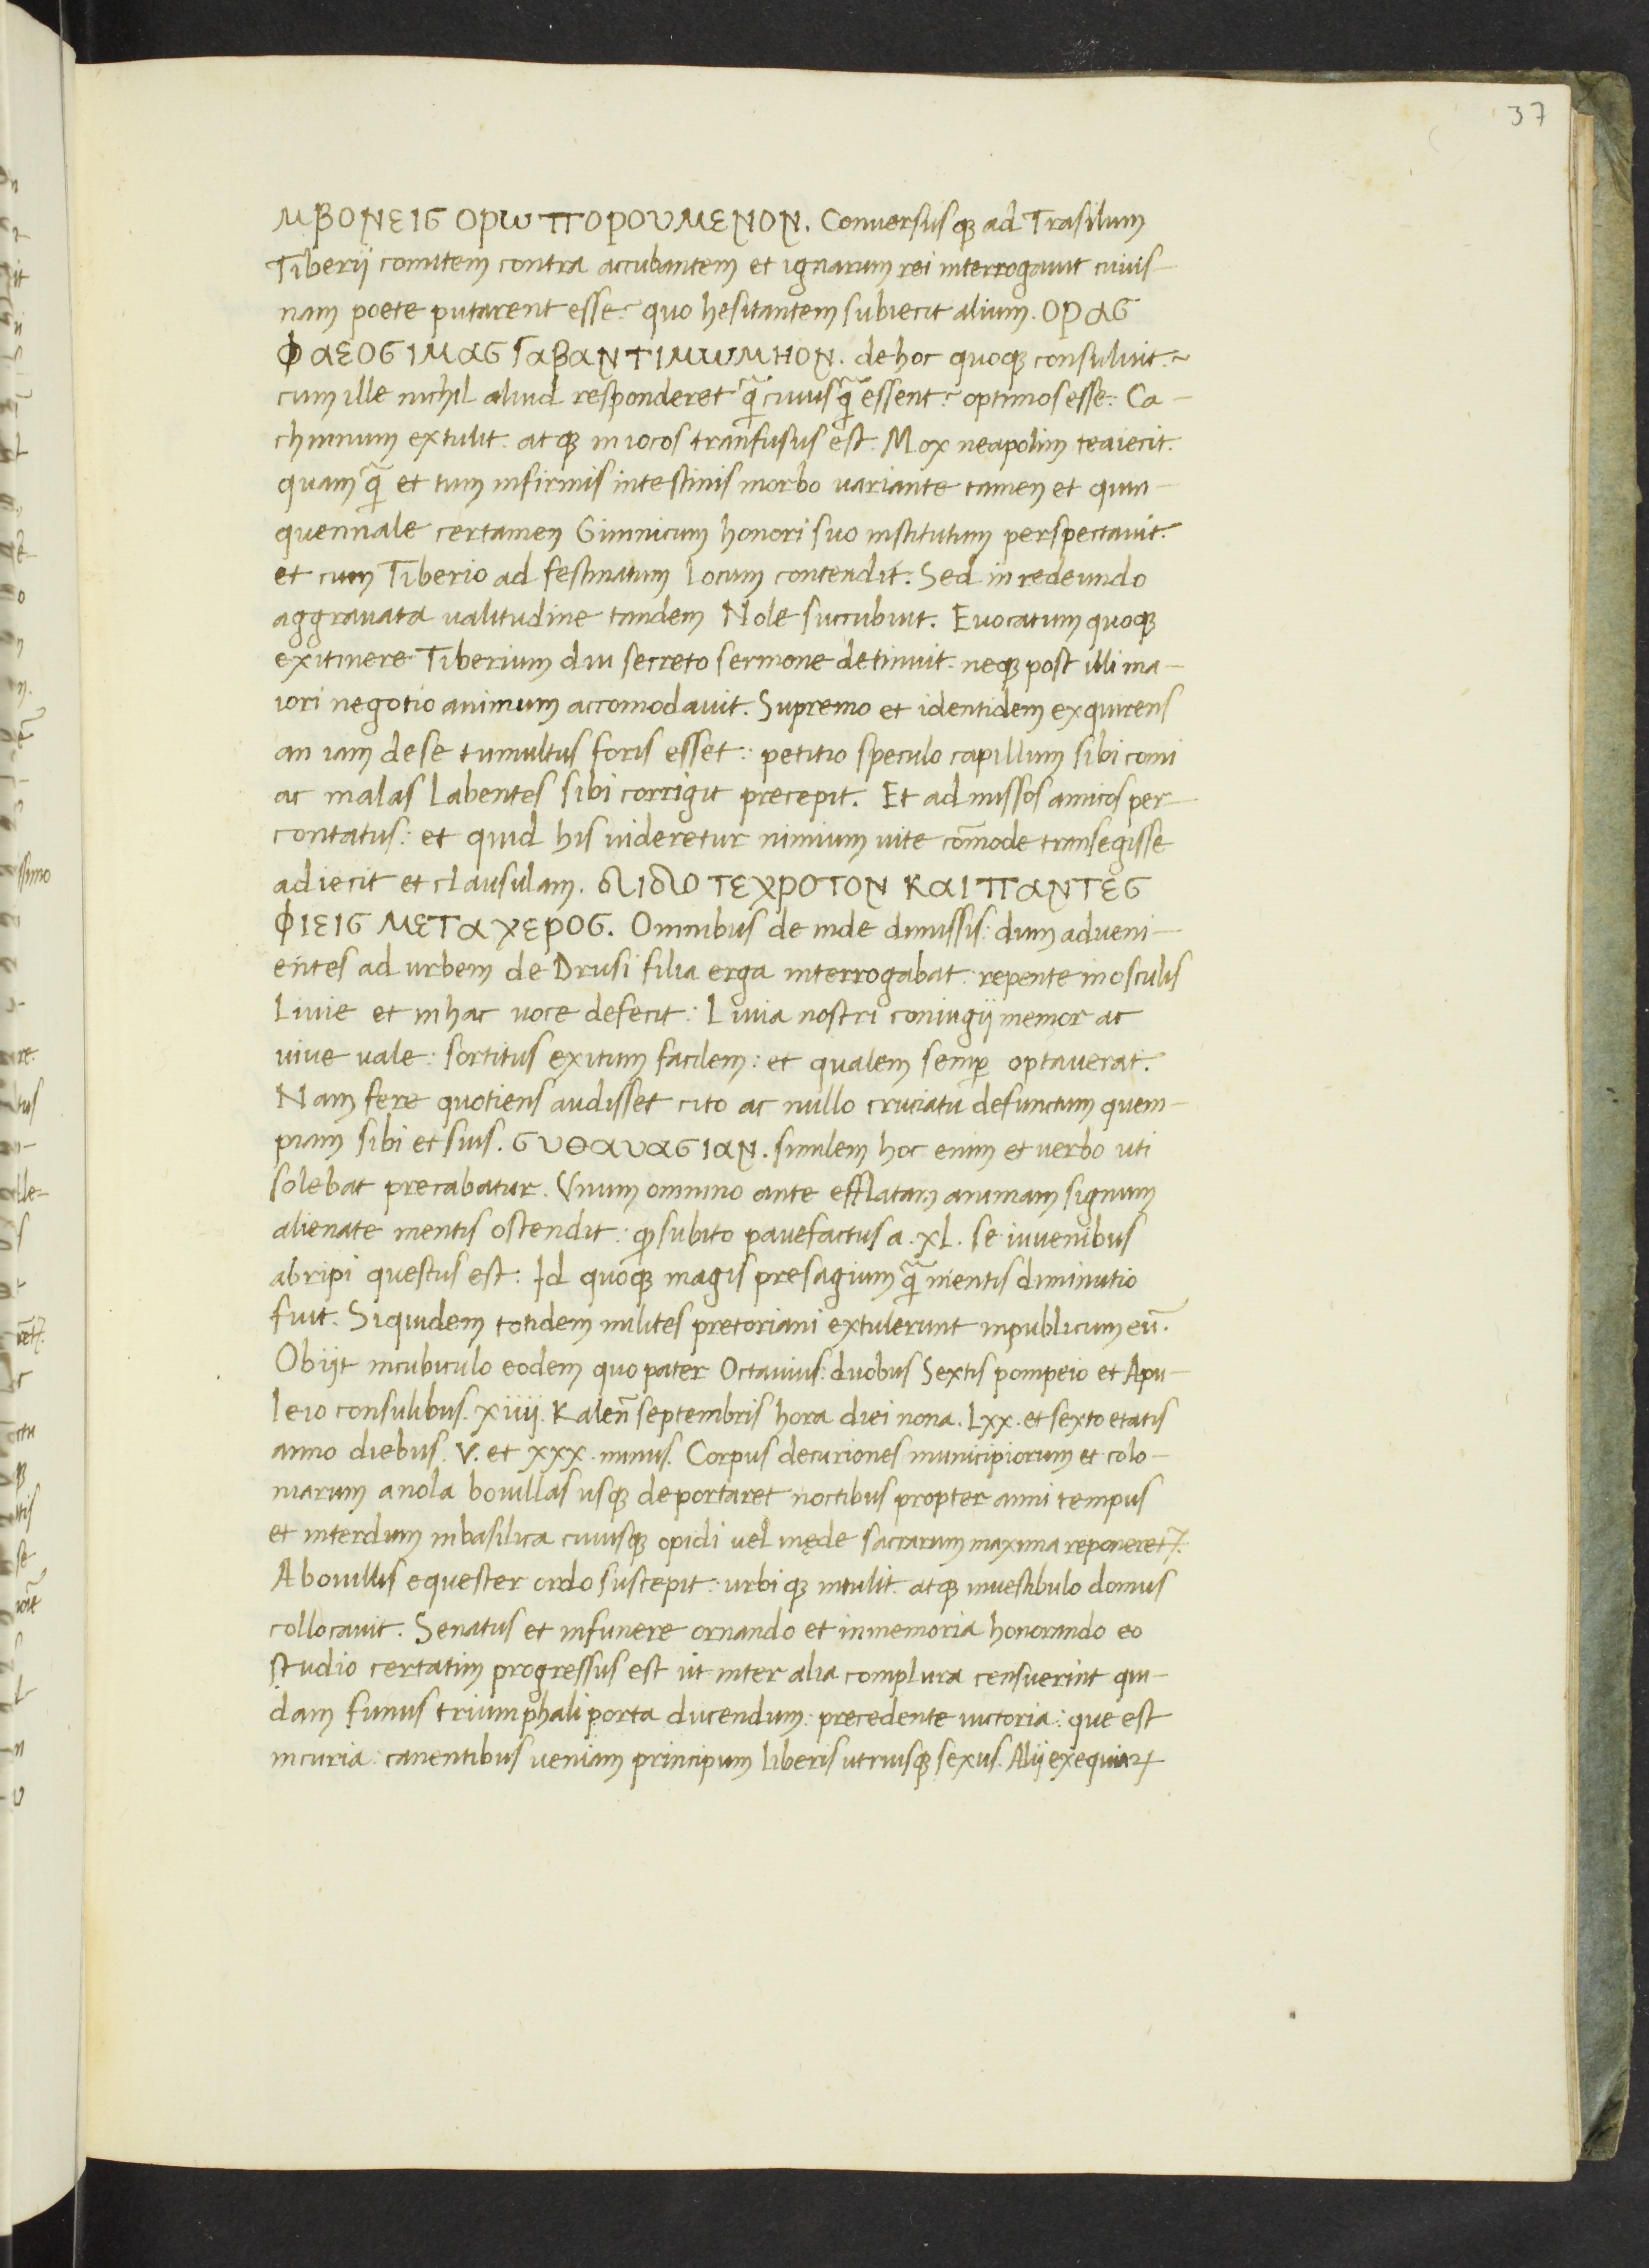 37
ΜΒΟΝΕΙϚ ΟΡω ΠΟΡΟΥΜΕΝΟΝ. Conuersusq; ad Trasilum
Tiberij comitem contra accubantem et ignarum rei interrogauit cuius-
nam poete putarent esse: quo hesitantem subiecit alium. ΟΡαϚ
ΦαΕΟϚΙΜαϚΓαΒαΝΤΙΜωΜΗΟΝ. de hoc quoq; consuluit:~
cum ille nichil aliud responderet q̃ cuiusq̃ essent: optimos esse: Ca-
chinnum extulit. atq; in iocos tran̄fusus est. Mox neapolim teaiecit.
quamq̃ et tum infirmis intestinis morbo uariante tamen et quin-
quennale certamen Gimnicum honori suo institutum perspectauit:
et cum Tiberio ad festinatum locum contendit: Sed in redeundo
aggrauata ualitudine tandem Nole succubuit. Euocatum quoq;
exitinere Tiberium diu secreto sermone detinuit. neq; post illi ma-
iori negotio animum accomodauit. Supremo et identidem exquirens
an iam de se tumultus foris esset: petitio speculo capillum sibi comi
ac malas labentes sibi corrigit precepit. Et admissos amicos per-
contatus: et quid his uideretur nimium uite com̄ode transegisse
adiecit et clausulam. δΙδΟ ΤΕΧΡΟΤΟΝ ΚαΙΠαΝΤΕϚ
ΦΙΕΙϚ ΜΕΤαΧΕΡΟϚ. Omnibus de inde dimissis: dum adueni-
entes ad urbem de Drusi filia erga interrogabat: repente in osculis
Liuie et in hac uoce defecit: Liuia nostri coniugij memor ac
uiue uale: sortitus exitum facilem: et qualem semp̄ optauerat.
Nam fere quotiens audisset cito ac nullo cruciatu defunctum quem-
piam sibi et suis. ϚΥΘαυαϚΙαΝ. similem hoc enim et uerbo uti
solebat precabatur. Vnum omnino ante efflatam animam signum
alienate mentis ostendit: q̃ subito pauefactus a. xl. se iuuenibus
abripi questus est: Id quoq; magis presagium q̃ mentis diminutio
fuit. Siquidem totidem milites pretoriani extulerunt inpublicum eū.
Obijt incubiculo eodem quo pater Octauius: duobus Sextis pompeio et Apu-
leio consulibus. xiiij. Kalen̄ septembris hora diei nona. Lxx. et sexto etatis
anno diebus. V. et xxx. minus. Corpus decuriones municipiorum et colo-
niarum a nola bouillas usq; deportaret noctibus propter anni tempus
et interdum inbasilica cuiusq; opidi uel inęde sacrarum maxima reponeret7.
Abouillis equester ordo suscepit: urbiq; intulit. atq; inuestibulo domus
collocauit. Senatus et infunere ornando et inmemoria honorando eo
studio certatim progressus est ut inter alia complura censuerint qui-
dam funus triumphali porta ducendum: precedente uictoria: que est
incuria: canentibus ueniam principum liberis utriusq; sexus. Alij exequiaꝝ